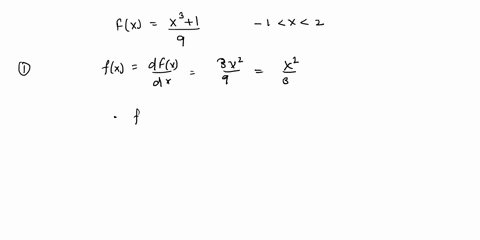 F(x) = x³+1 / 9    -1 < x < 2
① f(x) = dF(x)/dx = 3x²/9 = x²/3
. f